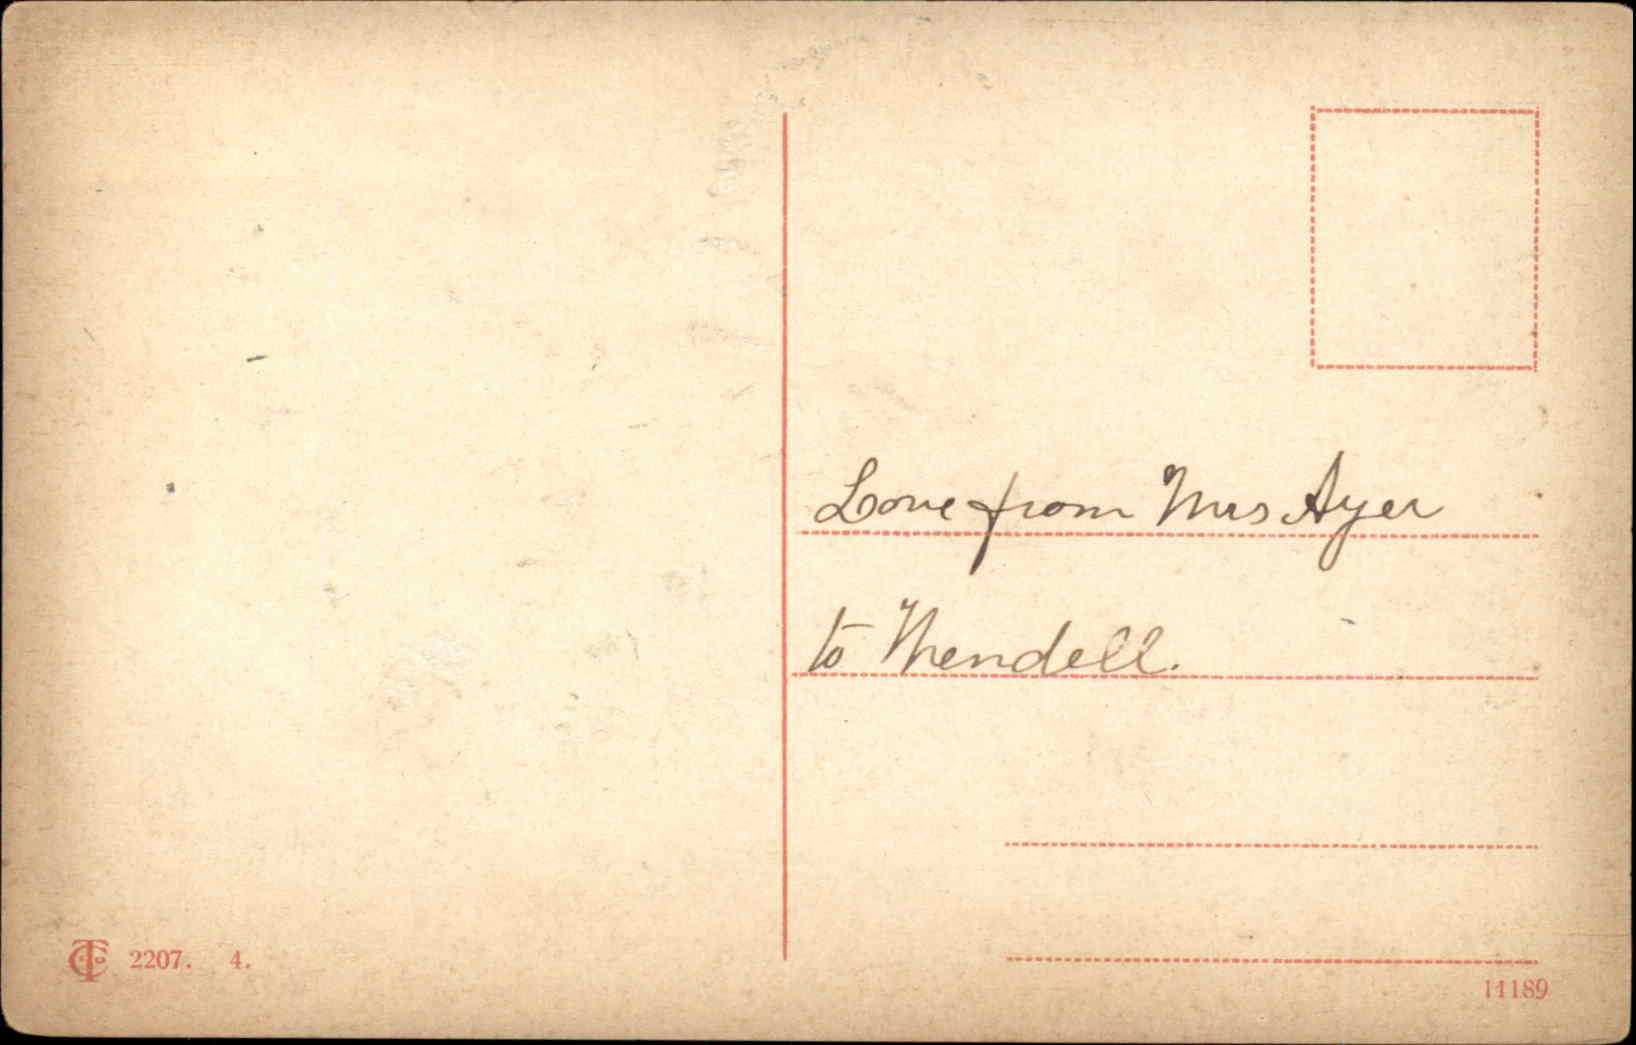 Love from Mrs Ayer
to Wendell.
2207. 4.
11189